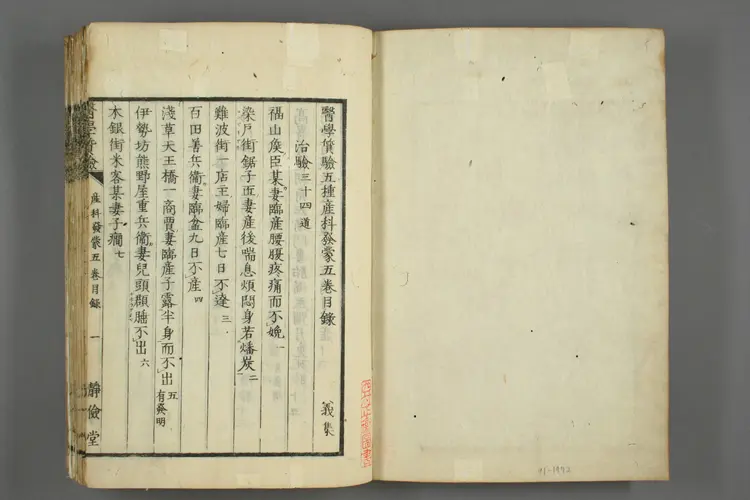 醫學質驗五種産科發蒙五卷目錄 義集
治驗三十四道
福山矦臣某妻臨産腰腹疼痛而不娩 一
染戸街鋸子匠妻産後喘息煩悶身若燔炭 二
難波街一店主婦臨産七日不達 三
百田善兵衞妻臨盆九日不産 四
淺草天王橋一商賈妻臨産子露半身而不出 五 有發明
伊勢坊熊野屋重兵衞妻兒頭顀腄不出 六
木銀街米客某妻子癇 七
醫學質驗 産科發蒙五卷目錄 一 靜儉堂
91-1992